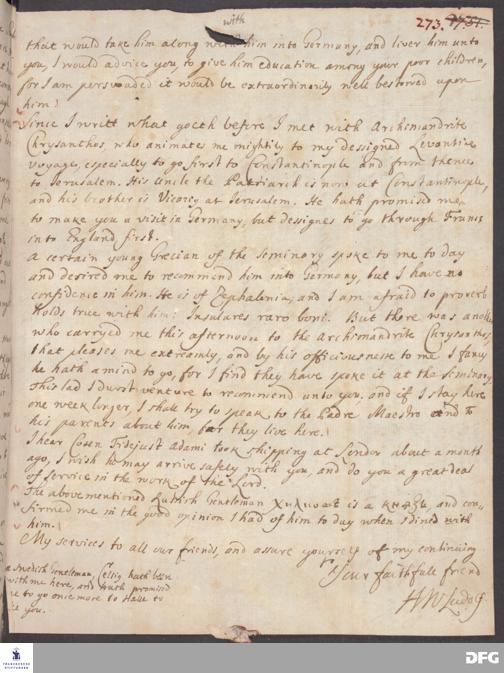 with
273.
that would take him along with him into Germany, and liver him unto
you, I would advice you, to give him education among your poor children,
for I am perswaded it would be extraordinarily well bestowed upon
him.
Since I writt what goeth before I met with Archimandrite
Chrysanthos, who animates me mightily to my designed Levantine
voyage, especially to go first to Constantinople and from thence
to Jerusalem. His Uncle the Patriarch is now at Constantinople,
and his brother is Vicario at Jerusalem. He hath promised me
to make you a visit in Germany, but designes to go through France
into England first.
A certain young Grecian of the Seminary spoke to me to day
and desired me to recommend him into Germany, but I have no
confidence in him. He is of Cephalonia, and I am afraid the proverb
holds true with him: Insulares raro boni. But there was another
who carryed me this afternoon to the Archimandrite Chrysanthos
that pleases me extreamly, and by his officiousnesse to me I fancy
he hath a mind to go, for I find they have spoke it at the Seminary.
This lad I durst venture to recommend unto you, and if I stay here
one week longer, I shall try to speak to the Padre Maestro and to
his parents about him, for they live here.
I hear Cosen Fidejust Adami took shipping at London about a month
ago, I wish he may arrive safely with you, and do you a great deal
of service in the work of the Lord.
The abovementioned Russish Gentleman is a князь, and con-
firmed me in the good opinion I had of him to day when I dined with
him.
My services to all our friends, and assure yourself of my continuing
Your faithfull friend
HWLudolf
a Swedish Gentleman hath been
with me here, and hath promised
me to go once more to Halle to
see you.
FRANCKESCHE
STIFTUNGEN
DFG